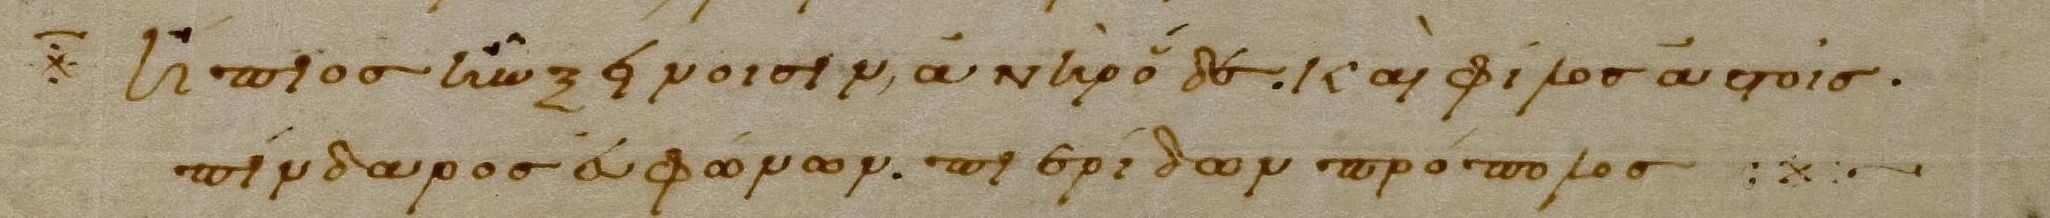 Ἤπιος ἦν ξείνοισιν, ἀνὴρ ὅδε. καὶ φίλος ἀστοῖς.
πίνδαρος εὐφώνων. πιερίδων πρόπολος